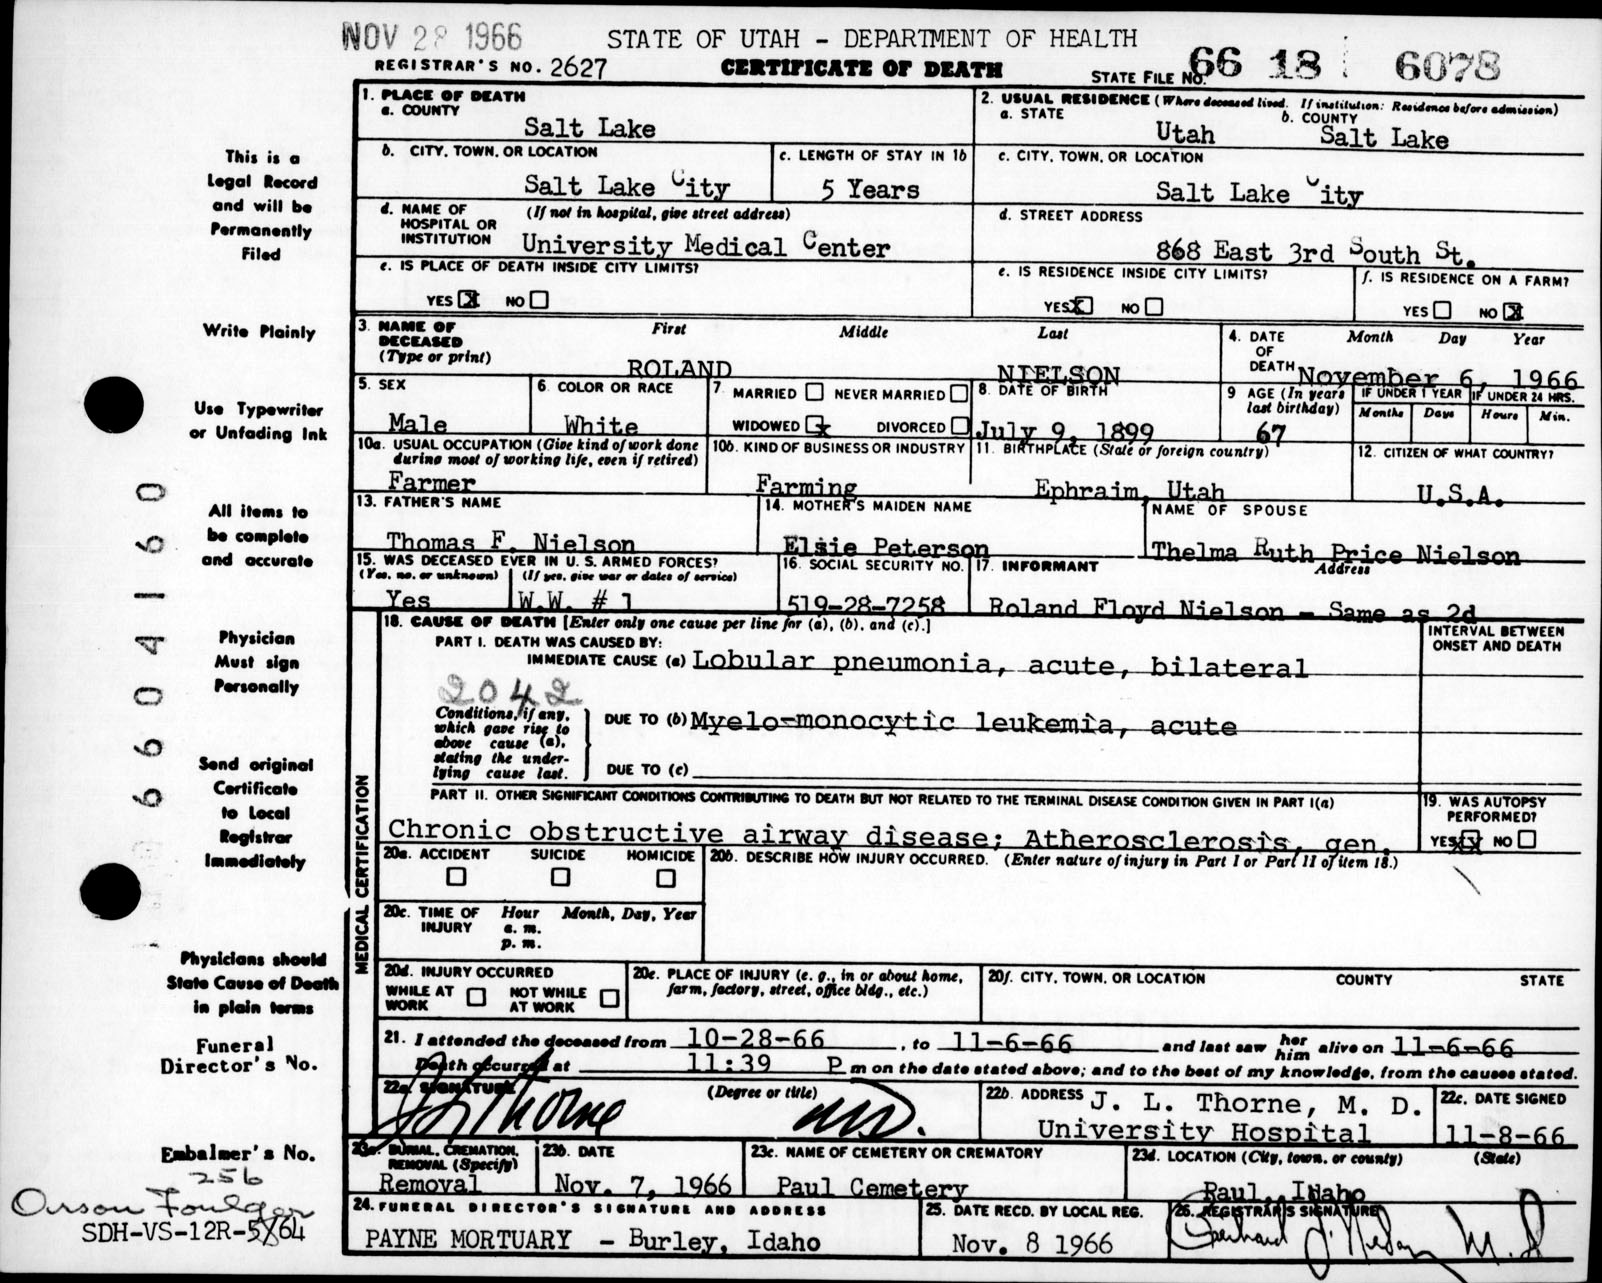 NOV 28 1966
STATE OF UTAH - DEPARTMENT OF HEALTH
REGISTRAR'S NO. 2627
CERTIFICATE OF DEATH
STATE FILE NO. 66 18 6078
1. PLACE OF DEATH
a. COUNTY
Salt Lake
2. USUAL RESIDENCE (Where deceased lived. If institution: Residence before admission)
a. STATE b. COUNTY
Utah Salt Lake
b. CITY, TOWN, OR LOCATION
Salt Lake City
c. LENGTH OF STAY IN 1b
5 Years
c. CITY, TOWN, OR LOCATION
Salt Lake City
d. NAME OF HOSPITAL OR INSTITUTION
(If not in hospital, give street address)
University Medical Center
d. STREET ADDRESS
868 East 3rd South St.
e. IS PLACE OF DEATH INSIDE CITY LIMITS?
YES X NO
e. IS RESIDENCE INSIDE CITY LIMITS?
YES X NO
f. IS RESIDENCE ON A FARM?
YES NO X
3. NAME OF DECEASED (Type or print)
First Middle Last
ROLAND NIELSON
4. DATE OF DEATH
Month Day Year
November 6, 1966
5. SEX
Male
6. COLOR OR RACE
White
7. MARRIED NEVER MARRIED
WIDOWED x DIVORCED
8. DATE OF BIRTH
July 9, 1899
9 AGE (In years last birthday)
67
IF UNDER 1 YEAR IF UNDER 24 HRS.
Months Days Hours Min.
10a. USUAL OCCUPATION (Give kind of work done during most of working life, even if retired)
Farmer
10b. KIND OF BUSINESS OR INDUSTRY
Farming
11. BIRTHPLACE (State or foreign country)
Ephraim, Utah
12. CITIZEN OF WHAT COUNTRY?
U.S.A.
13. FATHER'S NAME
Thomas F. Nielson
14. MOTHER'S MAIDEN NAME
Elsie Peterson
NAME OF SPOUSE
Thelma Ruth Price Nielson
15. WAS DECEASED EVER IN U. S. ARMED FORCES?
(Yes, no, or unknown) (If yes, give war or dates of service)
Yes W.W. # 1
16. SOCIAL SECURITY NO.
519-28-7258
17. INFORMANT Address
Roland Floyd Nielson - Same as 2d
MEDICAL CERTIFICATION
18. CAUSE OF DEATH [Enter only one cause per line for (a), (b), and (c).]
INTERVAL BETWEEN ONSET AND DEATH
PART I. DEATH WAS CAUSED BY:
IMMEDIATE CAUSE (a) Lobular pneumonia, acute, bilateral
2042
Conditions, if any, which gave rise to above cause (a), stating the underlying cause last.
DUE TO (b) Myelo-monocytic leukemia, acute
DUE TO (c)
PART II. OTHER SIGNIFICANT CONDITIONS CONTRIBUTING TO DEATH BUT NOT RELATED TO THE TERMINAL DISEASE CONDITION GIVEN IN PART I(a)
Chronic obstructive airway disease; Atherosclerosis, gen.
19. WAS AUTOPSY PERFORMED?
YES XX NO
20a. ACCIDENT SUICIDE HOMICIDE
20b. DESCRIBE HOW INJURY OCCURRED. (Enter nature of injury in Part I or Part II of item 18.)
20c. TIME OF INJURY Hour Month, Day, Year
a. m.
p. m.
20d. INJURY OCCURRED
WHILE AT WORK NOT WHILE AT WORK
20e. PLACE OF INJURY (e. g., in or about home, farm, factory, street, office bldg., etc.)
20f. CITY, TOWN, OR LOCATION COUNTY STATE
21. I attended the deceased from 10-28-66, to 11-6-66 and last saw her him alive on 11-6-66
Death occurred at 11:39 P m on the date stated above; and to the best of my knowledge, from the causes stated.
22a. SIGNATURE (Degree or title)
J L Thorne MD.
22b. ADDRESS J. L. Thorne, M. D.
University Hospital
22c. DATE SIGNED
11-8-66
23a. BURIAL, CREMATION, REMOVAL (Specify)
Removal
23b. DATE
Nov. 7, 1966
23c. NAME OF CEMETERY OR CREMATORY
Paul Cemetery
23d. LOCATION (City, town, or county) (State)
Paul, Idaho
24. FUNERAL DIRECTOR'S SIGNATURE AND ADDRESS
PAYNE MORTUARY - Burley, Idaho
25. DATE RECD. BY LOCAL REG.
Nov. 8 1966
26. REGISTRAR'S SIGNATURE
M.D
This is a
Legal Record
and will be
Permanently
Filed
Write Plainly
Use Typewriter
or Unfading Ink
All items to
be complete
and accurate
Physician
Must sign
Personally
Send original
Certificate
to Local
Registrar
Immediately
Physicians should
State Cause of Death
in plain terms
Funeral
Director's No.
Embalmer's No.
256
Orson Foulger
SDH-VS-12R-5/64
66 04160